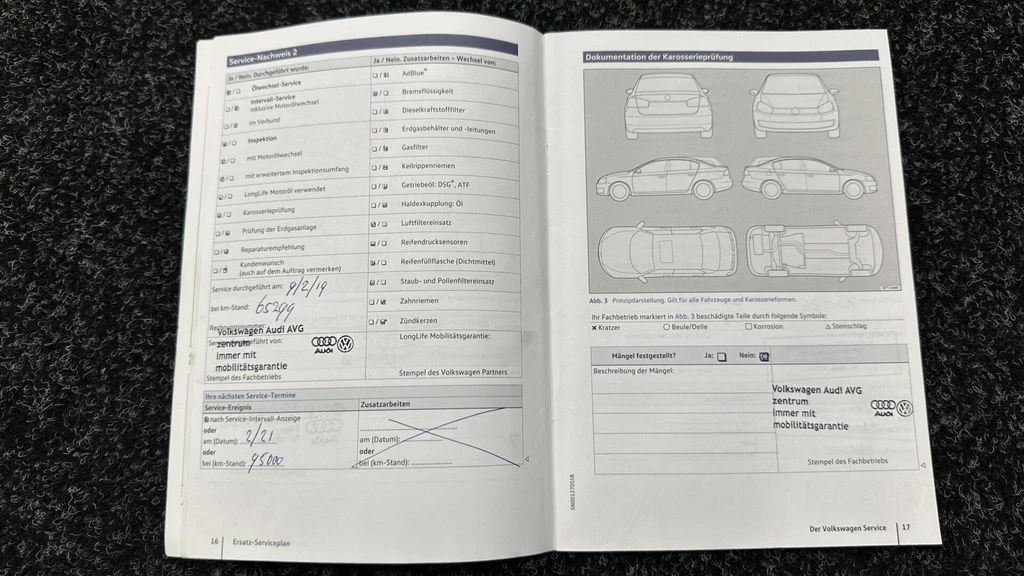 Service-Nachweis 2
Ja / Nein. Durchgeführt wurde:
Ölwechsel-Service
Intervall-Service
inklusive Motorölwechsel
im Verbund
Inspektion
mit Motorölwechsel
mit erweitertem Inspektionsumfang
LongLife Motoröl verwendet
Karosserieprüfung
Prüfung der Erdgasanlage
Reparaturempfehlung
Kundenwunsch
(auch auf dem Auftrag vermerken)
Service durchgeführt am: 9/2/19
bei km-Stand: 65299
Rechnungsnummer:
Volkswagen Audi AVG
zentrum
immer mit
mobilitätsgarantie
Audi
Stempel des Fachbetriebs
Ja / Nein. Zusatzarbeiten – Wechsel von:
AdBlue®
Bremsflüssigkeit
Dieselkraftstofffilter
Erdgasbehälter und -leitungen
Gasfilter
Keilrippenriemen
Getriebeöl: DSG®, ATF
Haldexkupplung: Öl
Luftfiltereinsatz
Reifendrucksensoren
Reifenfüllflasche (Dichtmittel)
Staub- und Pollenfiltereinsatz
Zahnriemen
Zündkerzen
LongLife Mobilitätsgarantie:
Stempel des Volkswagen Partners
Ihre nächsten Service-Termine
Service-Ereignis
nach Service-Intervall-Anzeige
oder
am (Datum): 2/21
oder
bei (km-Stand): 95000
Zusatzarbeiten
am (Datum):
oder
bei (km-Stand):
16 Ersatz-Serviceplan
Dokumentation der Karosserieprüfung
Abb. 3 Prinzipdarstellung. Gilt für alle Fahrzeuge und Karosserieformen.
Ihr Fachbetrieb markiert in Abb. 3 beschädigte Teile durch folgende Symbole:
Kratzer Beule/Delle Korrosion Steinschlag
Mängel festgestellt? Ja: Nein:
Beschreibung der Mängel:
Volkswagen Audi AVG
zentrum
immer mit
mobilitätsgarantie
Audi
Stempel des Fachbetriebs
Der Volkswagen Service 17